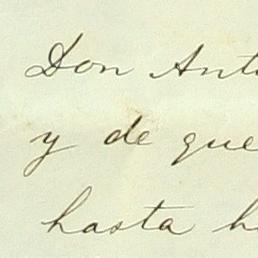 Don Anto
y de que
hasta h